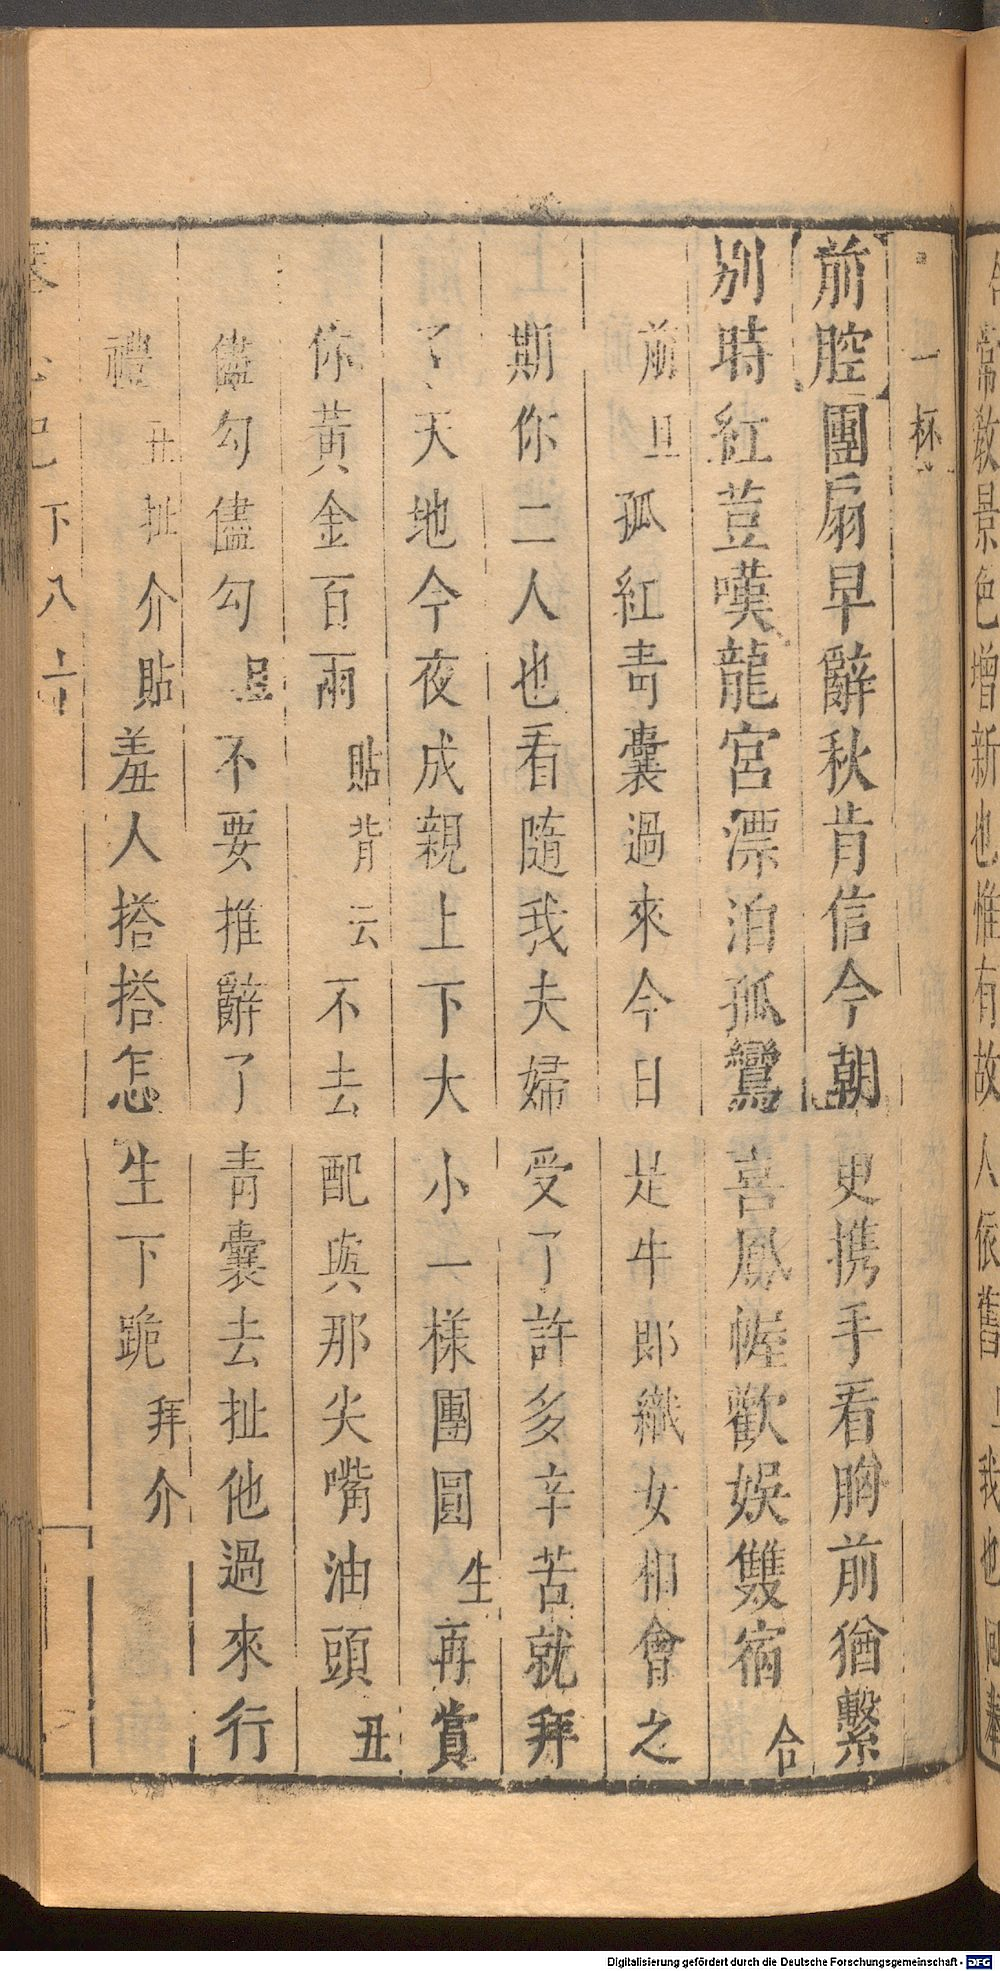 常教景色增新也惟有故人依舊 我也
一杯
前腔團扇早辭秋肯信今朝更携手看胸前猶繫
別時紅荳嘆龍宮漂泊孤鸞喜鳳幄歡娛雙宿合
前旦孤紅青囊過來今日是牛郎織女相會之
斯你二人也看隨我夫婦受了許多辛苦就拜
了天地今夜成親上下大小一樣團圓生再賞
你黃金百兩貼背云不去配與那尖嘴油頭丑
儘勾儘勾 不要推辭了青囊去扯他過來行
禮丑扯介貼羞人搭搭怎生下跪拜介
下 八十
Digitalisierung gefördert durch die Deutsche Forschungsgemeinschaft - DFG